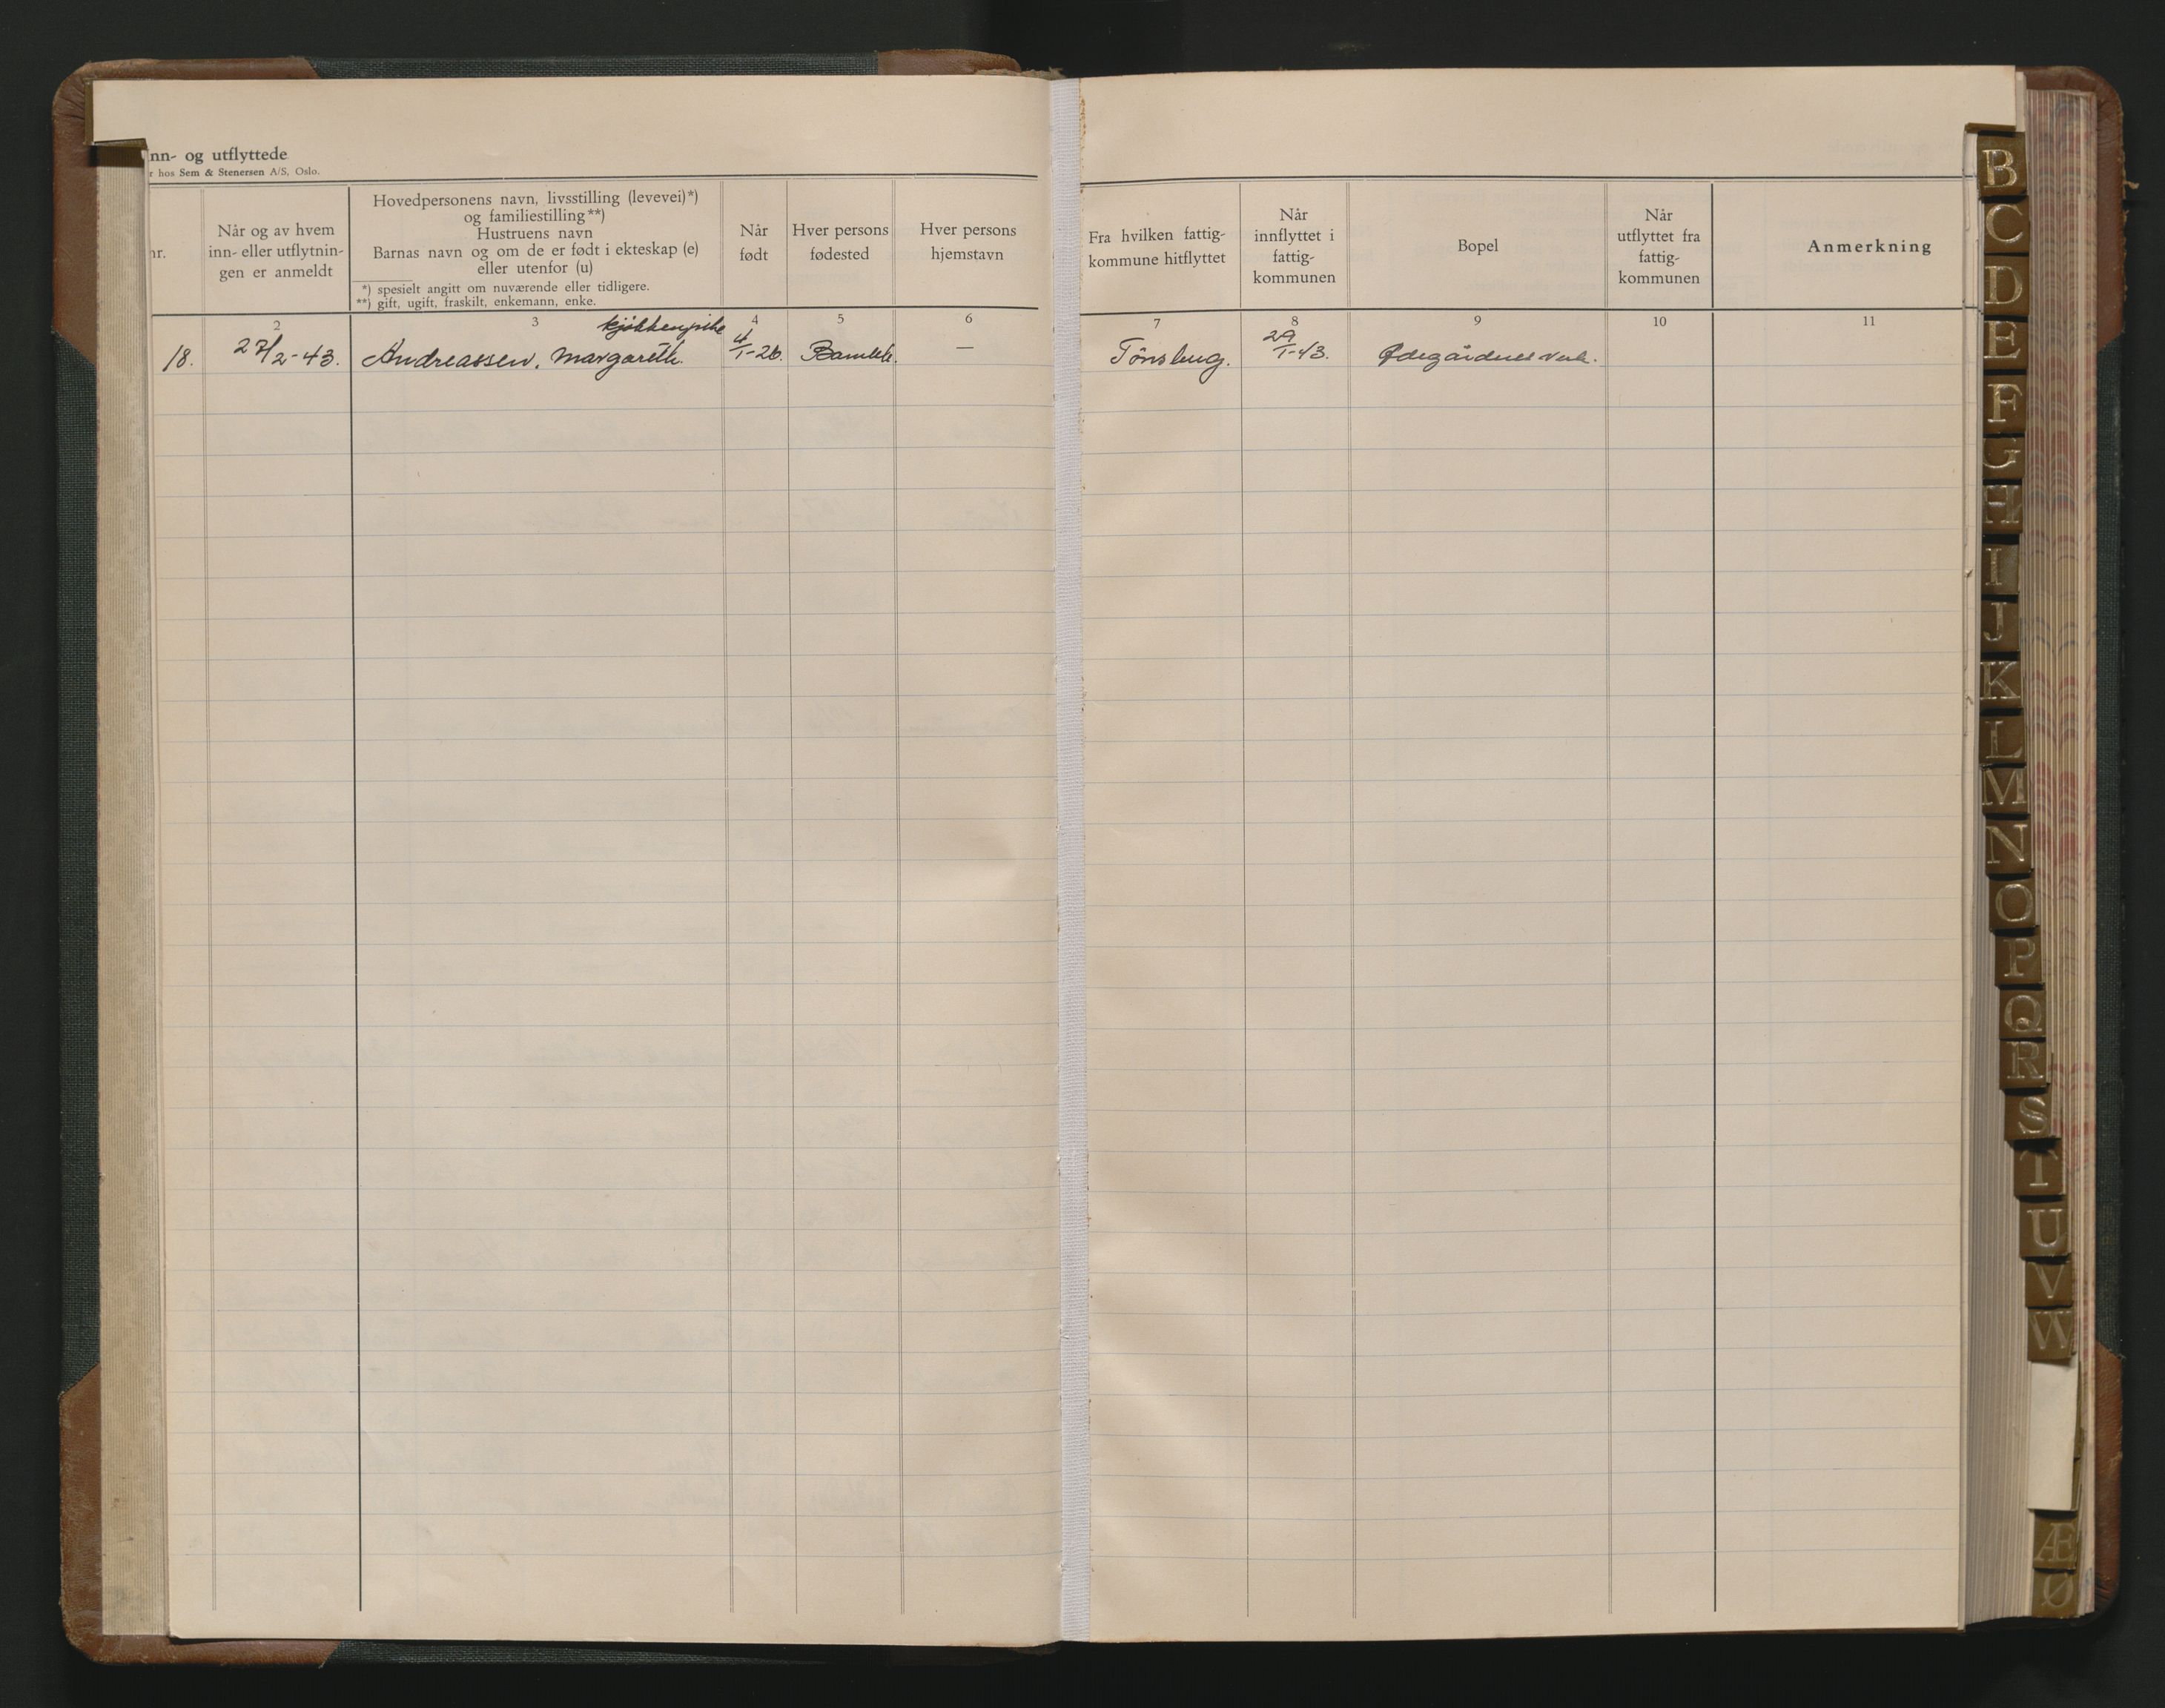 nn- og utflyttede
r hos Sem & Stenersen A/S, Oslo.
nr.
Når og av hvem
inn- eller utflytnin-
gen er anmeldt
Hovedpersonens navn, livsstilling (levevei)*)
og familiestilling**)
Hustruens navn
Barnas navn og om de er født i ekteskap (e)
eller utenfor (u)
*) spesielt angitt om nuværende eller tidligere.
**) gift, ugift, fraskilt, enkemann, enke.
Når
født
Hver persons
fødested
Hver persons
hjemstavn
Fra hvilken fattig-
kommune hitflyttet
Når
innflyttet i
fattig-
kommunen
Bopel
Når
utflyttet fra
fattig-
kommunen
Anmerkning
2 3 4 5 6 7 8 9 10 11
kjøkkenpike
18. 27/2-43. Andreassen, Margareth. 4/1-26. Bamble. — Tönsberg. 29/1-43. Ødegårdens verk.
B
C
D
E
F
G
H
I
J
K
L
M
N
O
P
Q
R
S
T
U
V
W
Æ
Ø